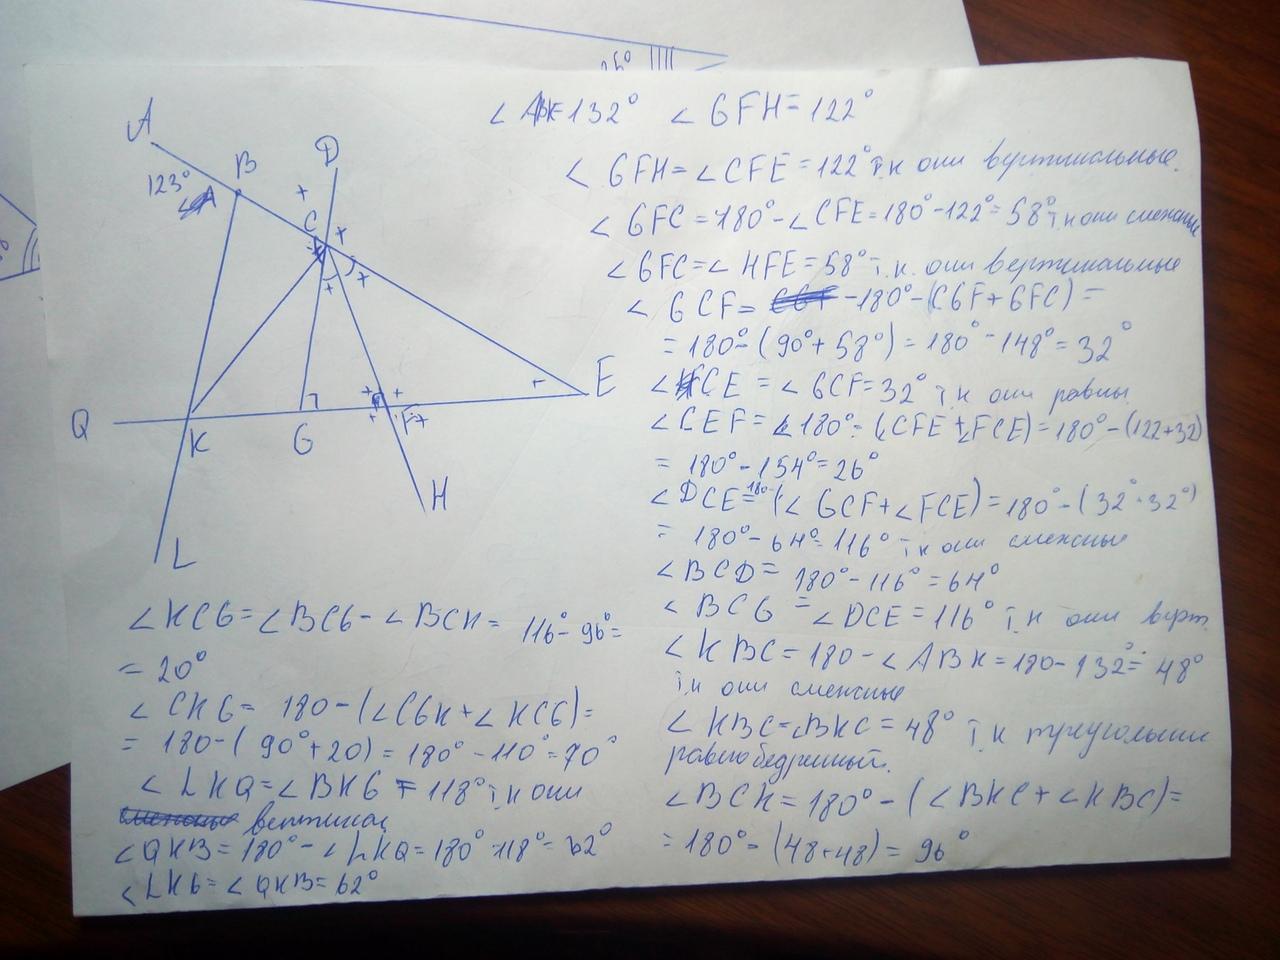 25°
∠ABK=132° ∠GFH=122°
∠GFH=∠CFE=122° т.к они вертикальные.
∠GFC=180°-∠CFE=180°-122°=58° т.к они смежные
∠GFC=∠HFE=58° т.к. они вертикальные
∠GCF= -180°-(CGF+GFC)=
=180°-(90°+58°)=180°-148°=32°
∠FCE=∠GCF=32° т.к они равны
∠CEF=∠180°-(∠CFE+∠FCE)=180°-(122+32)
=180°-154°=26°
∠DCE=180-(∠GCF+∠FCE)=180°-(32°+32°)
=180°-64°=116° т.к они смежные
∠BCD=180°-116°=64°
∠BCG=∠DCE=116° т.к они верт.
∠KBC=180-∠ABK=180-132°=48°
т.к они смежные
∠KBC=∠BKC=48° т.к треугольник
равнобедренный.
∠BCK=180°-(∠BKC+∠KBC)=
=180°-(48+48)=96°
A
B
D
123°
C
E
Q
K
G
F
H
L
∠KCG=∠BCG-∠BCK=116°-96°=
=20°
∠CKG=180-(∠CGK+∠KCG)=
=180-(90°+20)=180°-110°=70°
∠LKQ=∠BKG=118° т.к они
вертикал
∠QKB=180°-∠LKQ=180°-118°=62°
∠LKG=∠QKB=62°